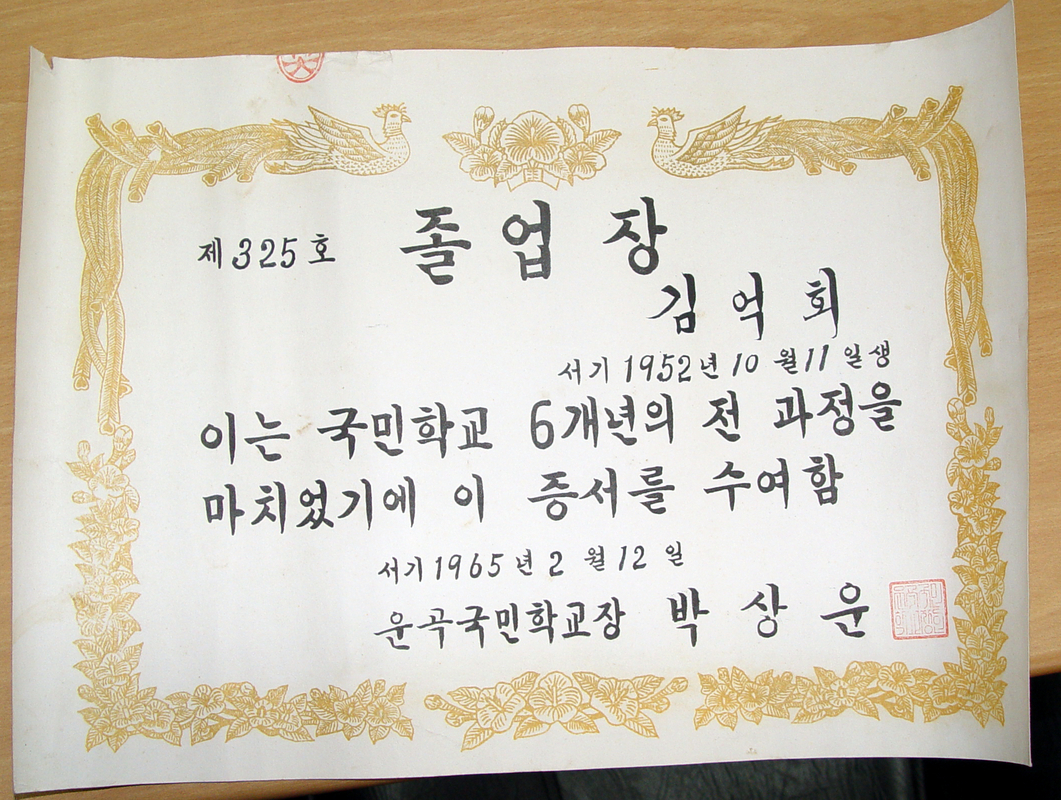 제 325 호
졸 업 장
김 억 회
서기 1952 년 10 월 11 일생
이는 국민학교 6개년의 전 과정을
마치었기에 이 증서를 수여함
서기 1965 년 2 월 12 일
운곡국민학교장 박 상 운